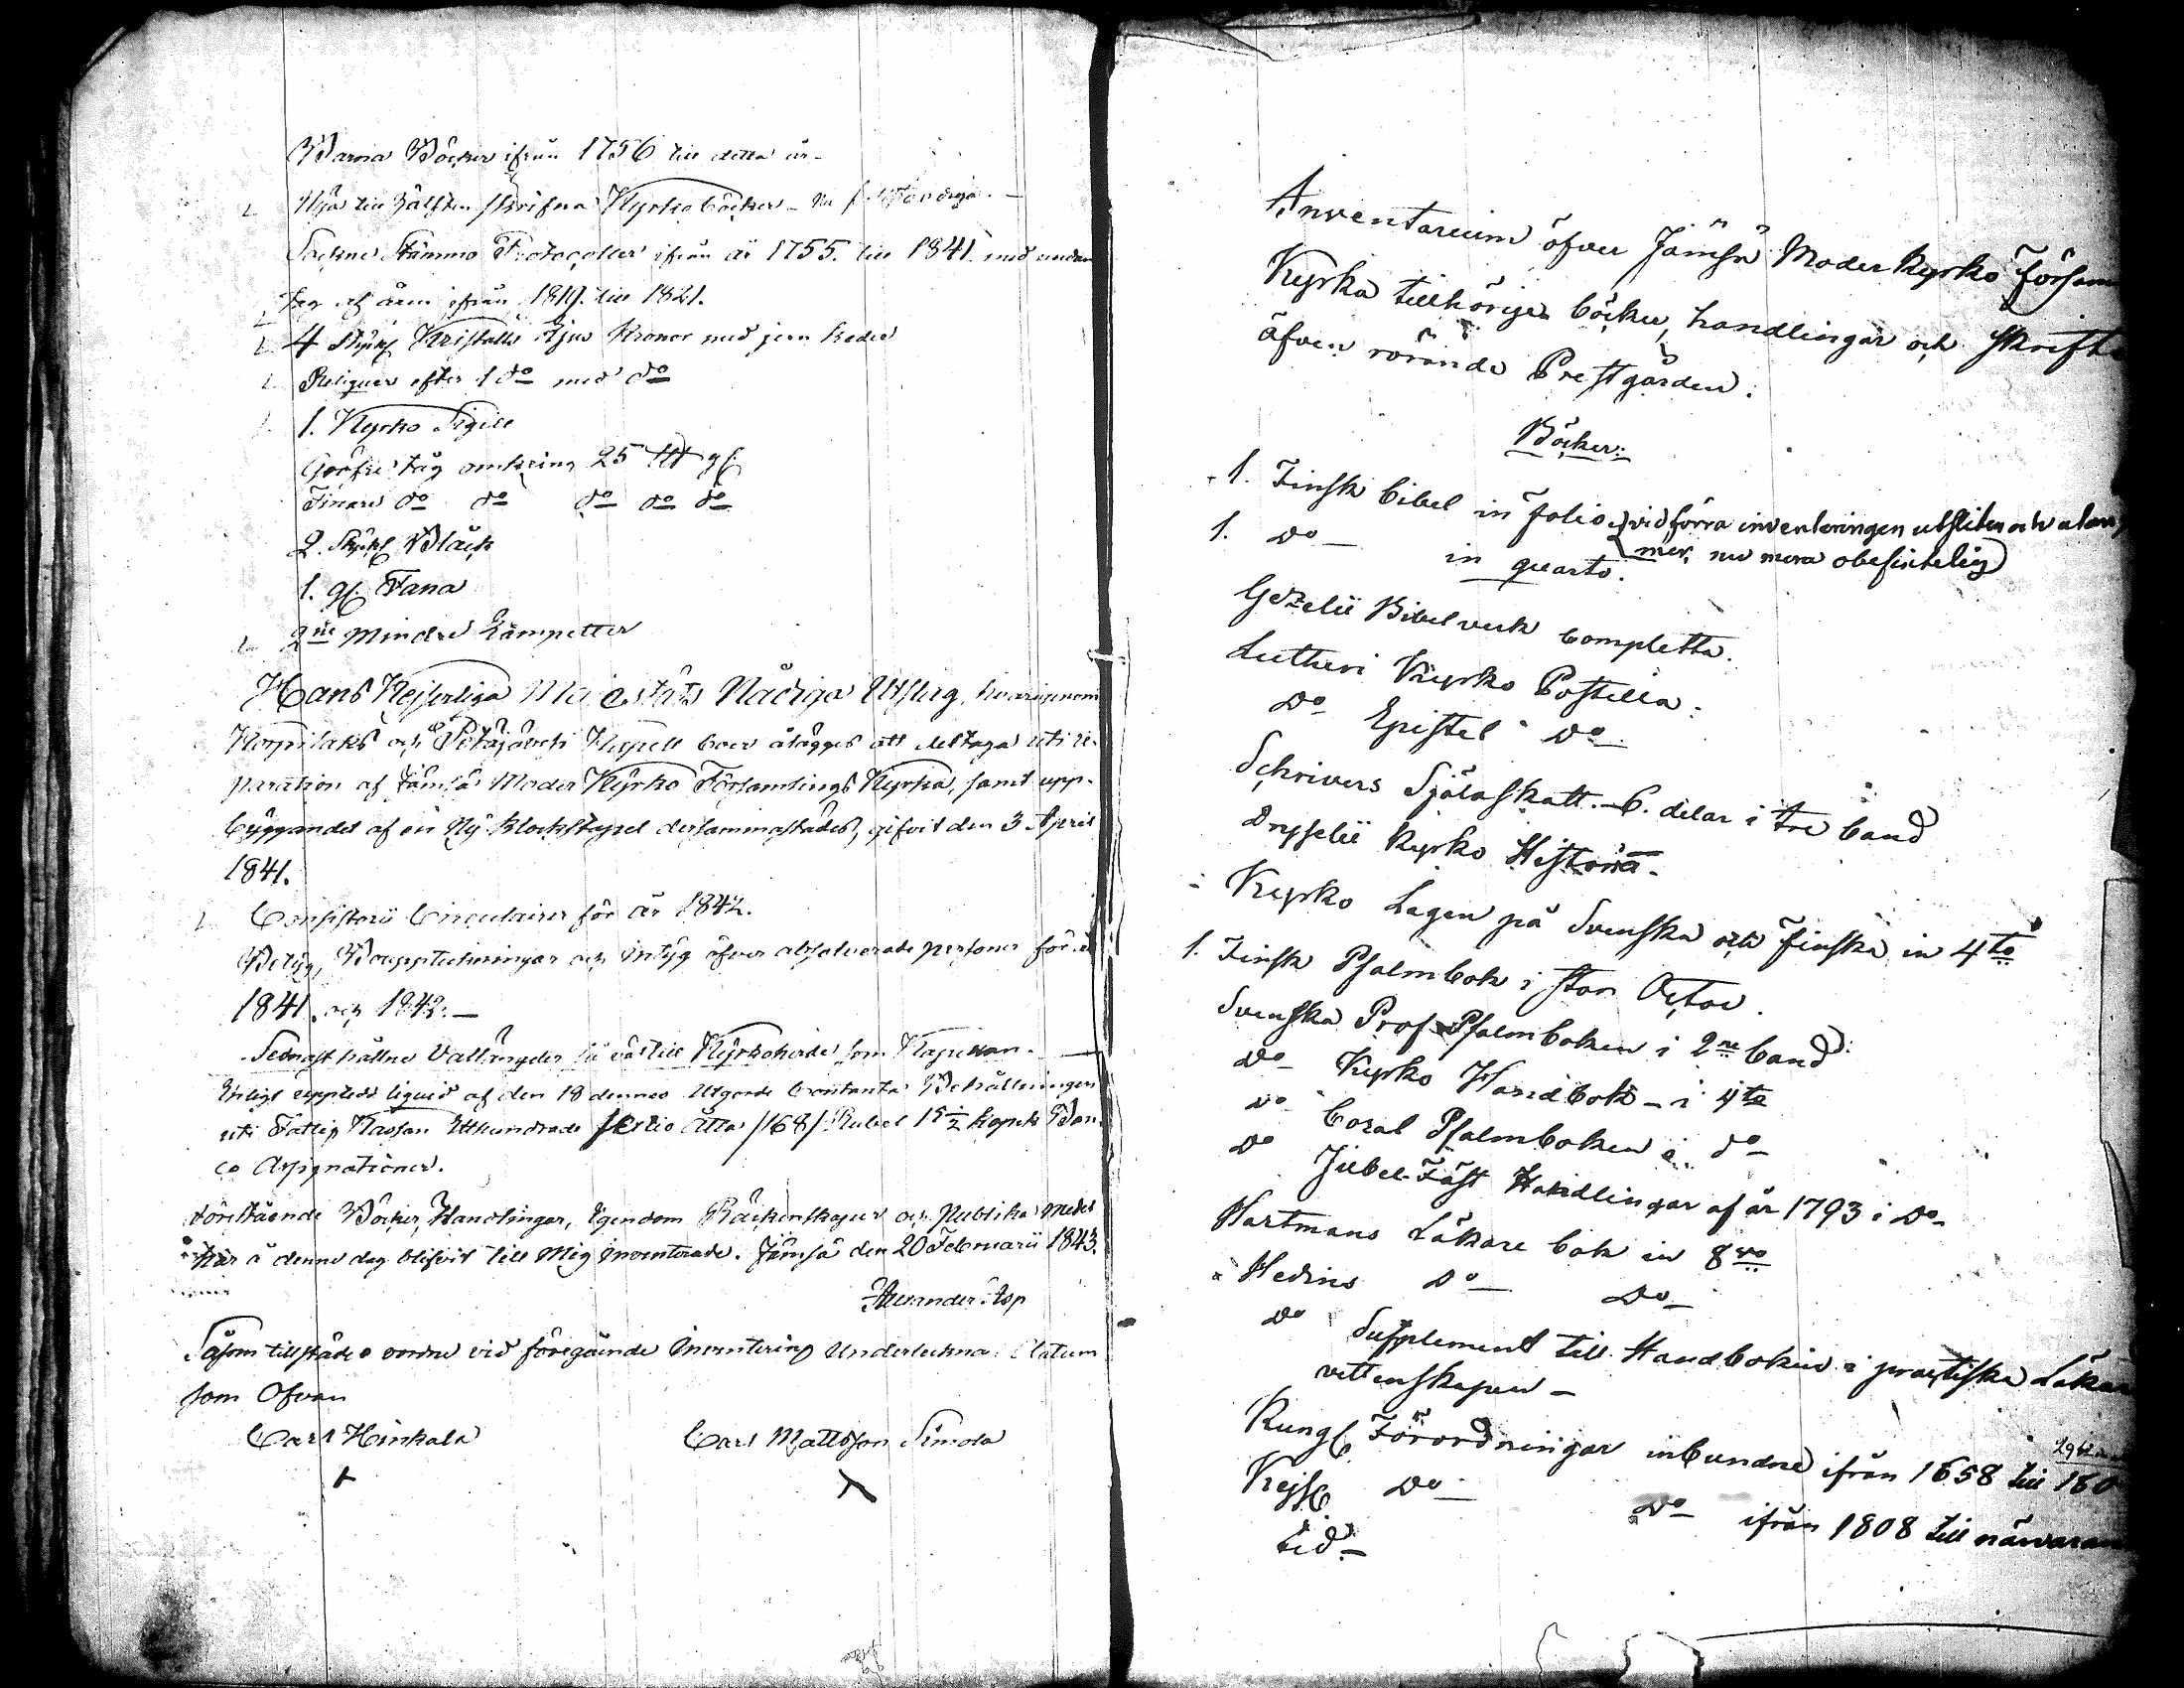 Barna Böcker ifrån 1756 till detta år.
Nya till hälften skrifna Kyrko böcker
Sockne Stämmo Protocoller ifrån år 1755. till 1841. med undan
tag af åren ifrån 1819. till 1821.
4 styck Kristalls Ljus Kronor med jern kedor
Reliquer efter 1 do med do
1. Kyrko Sigill
Gröfre tåg omkring 25 ℔
Finare do do do do do
2. Styck Block
1. gl. Fana
2ne Mindre Lampetter
Hans Kejserliga Majestäts Nådiga Utslag, hvarigenom
Korpilaks och Petäjävesi Kapell boer ålägges att deltaga uti re-
paration af Jämsä Moder Kyrko Församlings Kyrka, samt upp-
byggandet af en Ny Klockstapel dersammastädes, gifvit den 3 April
1841.
Consistorii Circulairer för år 1842.
Betyg, Boupptekningar och intyg öfver absolverade personer för år
1841. och 1842.
Sednast hållne Vallängder så väl till Kyrkoherde som Kapellan.
Enligt upplede liquid af den 18 dennes Utgorde Contanta Behållningen
uti Fattig Kassan Etthundrade sextio åtta /168/ Rubel 15½ kopek Ban-
co Assignationer.
Förestående Böcker, Handlingar, Egendom Räckenskaper och Publika Medel
här å denne dag blifvit till Mig Inventerade. Jämsä den 20 Februarii 1843.
Alexander Asp
Såsom tillstädes vordne vid föregående Inventering Underteckna. Datum
som Ofvan
Carl Hinkala Carl Mattsson Simola
Inventarium öfver Jämsä Moder Kyrko Försam
Kyrka tillhöriga böcker, handlingar och Skrifte
äfven rörande Prestgården:
Böcker:
1. Finsk bibel in folio (vid förra inventeringen utsliten och utan
mer, nu mera obefintelig)
1. do in quarto.
Gezelii Bibelverk completta.
Lutheri Kyrko Postilla:
do Epistel do
Schrivers Själaskatt. 6. delar i tre band
Dryselii Kyrko Historia.
Kyrko Lagen på Svenska och Finska in 4to
1. Finsk Psalmbok i stor Octav.
Svenska Prof Psalmboken i 2ne band:
do Kyrko Handbok i 4to
do Coral Psalmboken i do
do Jubel-Fäst Handlingar af år 1793 i do
Hartmans Läkare bok in 8vo
Hedins do do
do Supplement till Handboken i practiska Läkar
vettenskapen
Kungl Förordningar inbundne ifrån 1658 till 180
Kejsl do do ifrån 1808 till närvaran
tid.